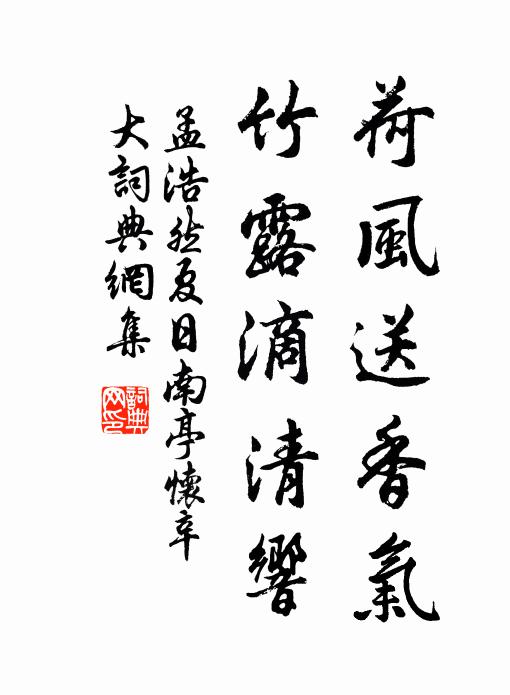 荷風送香氣
竹露滴清響
孟浩然夏日南亭懷辛
大詞典網集
詞典
网印